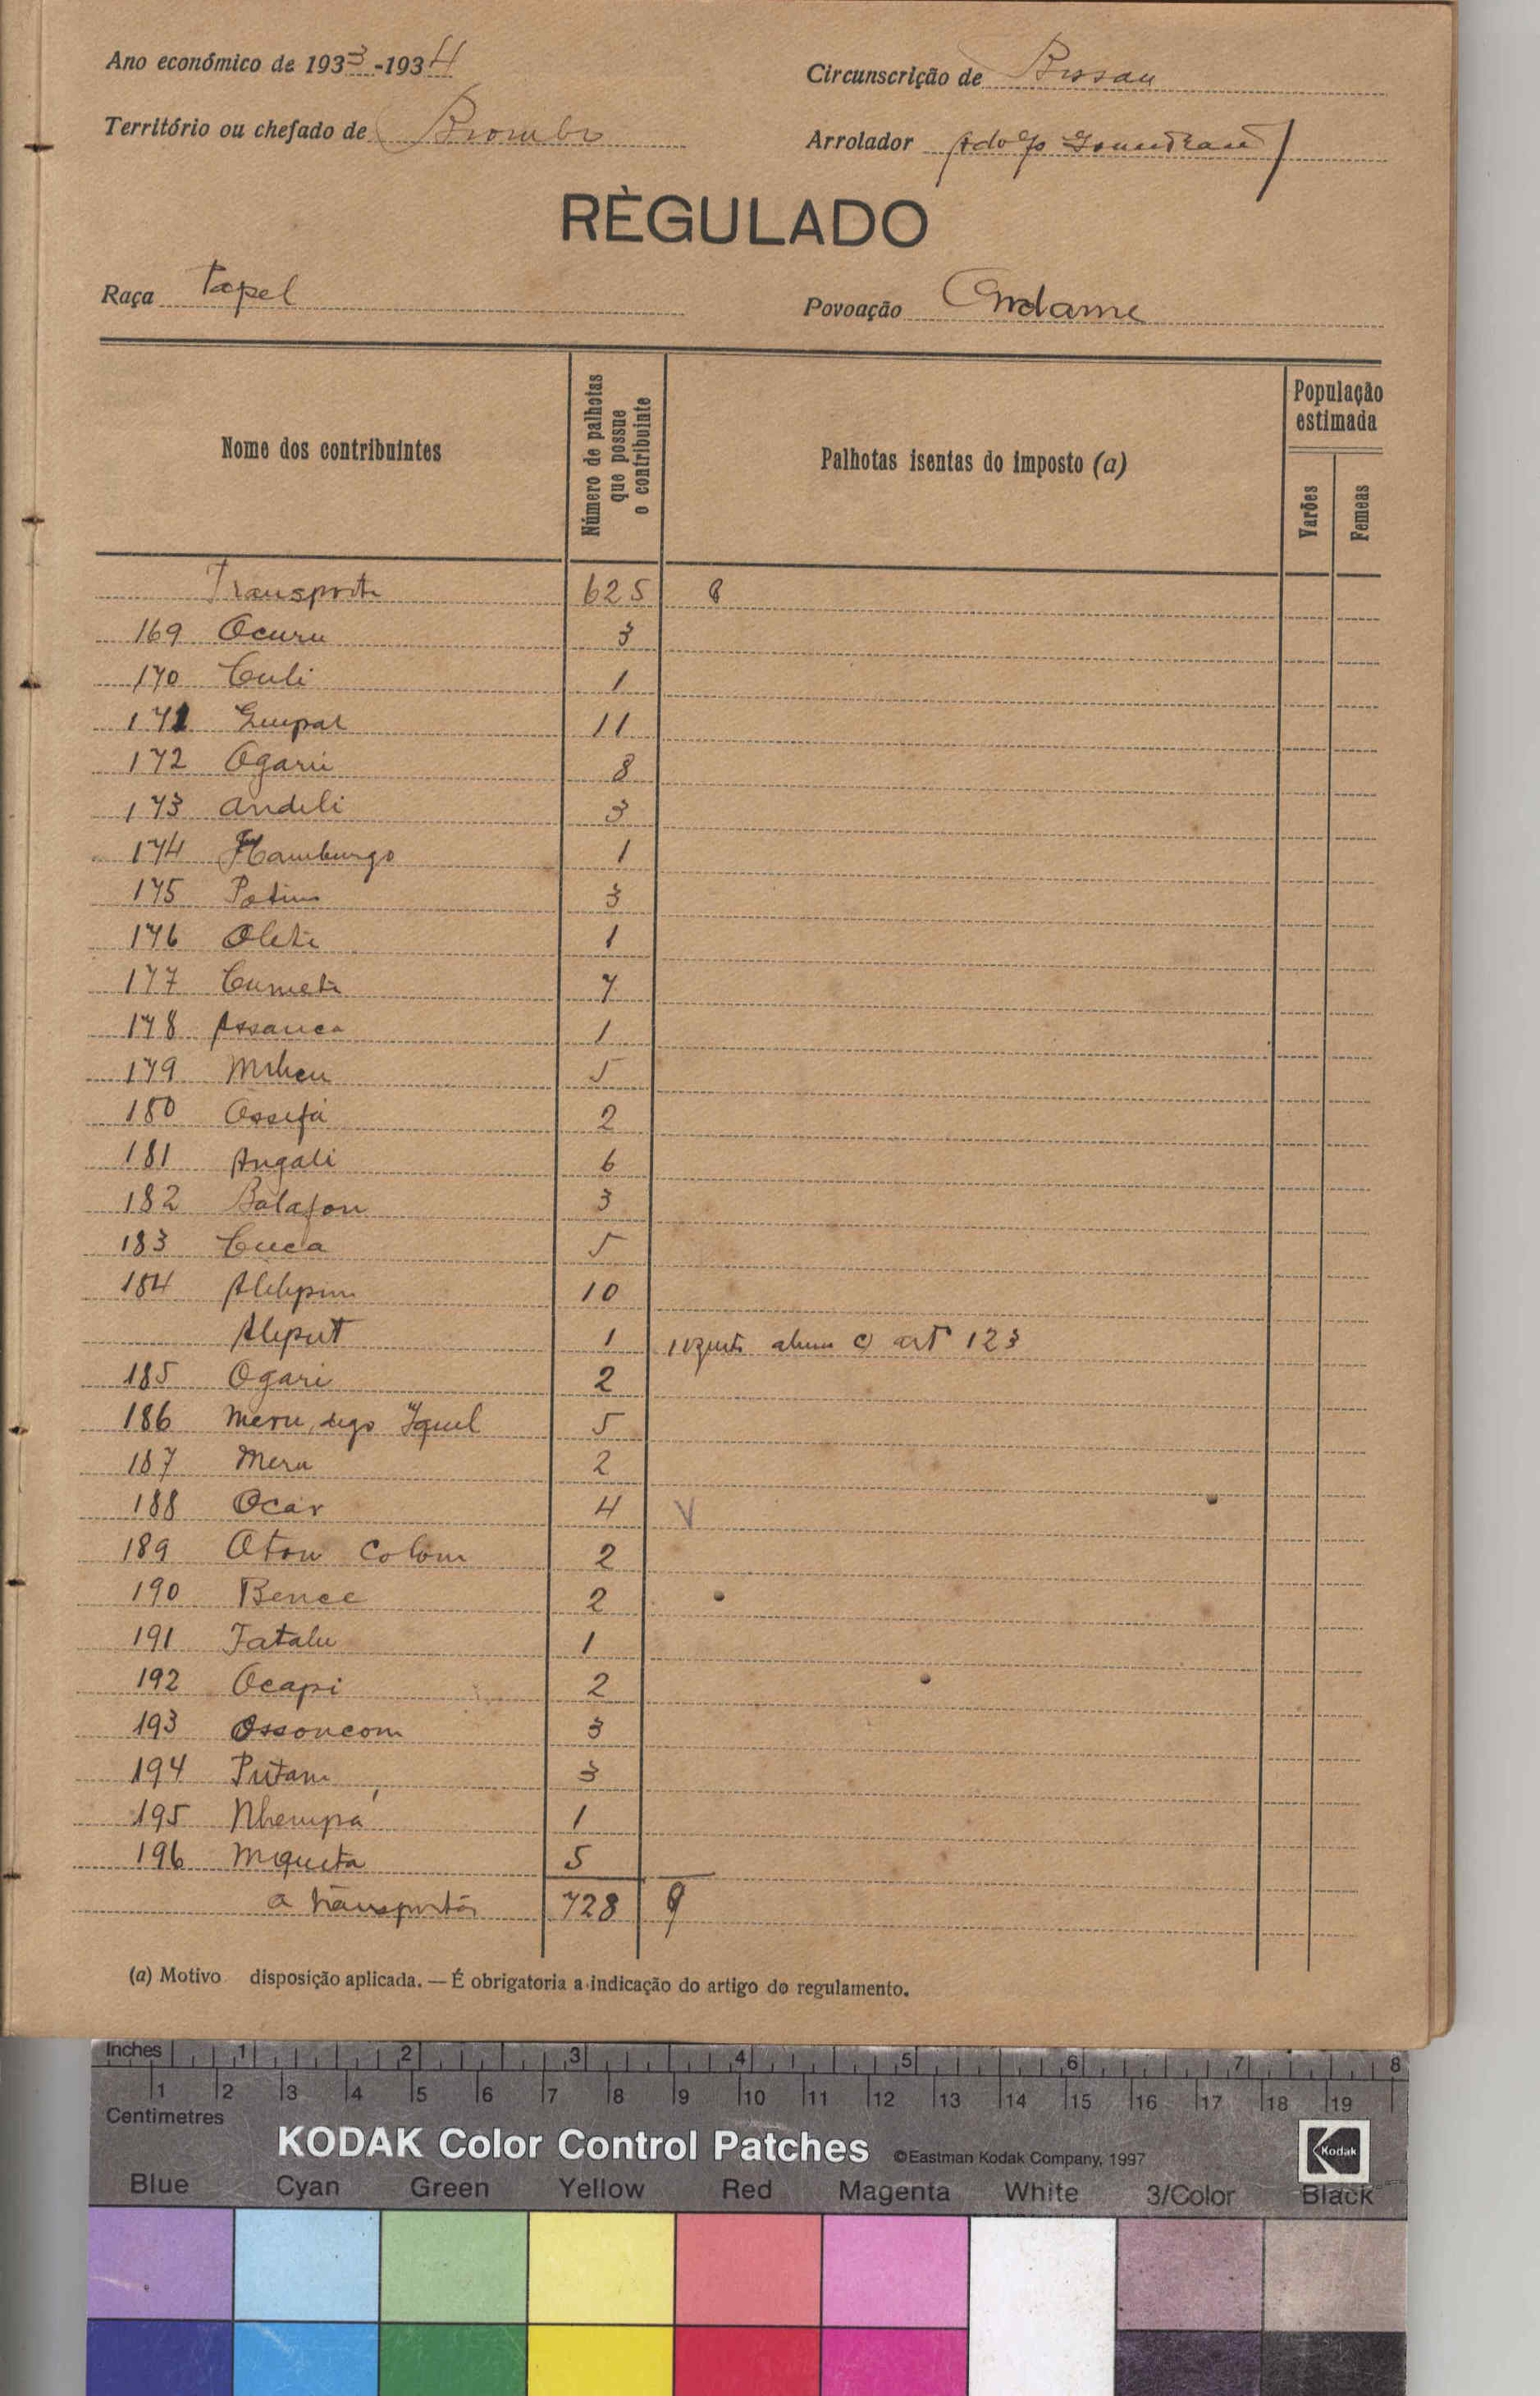 Ano económico de 1933-1934
Circunscrição de Bissau
Território ou chefado de Biombo
Arrolador Adolfo
RÈGULADO
Raça Papel
Povoação Ondame
Nome dos contribuintes
Número de palhotas que possue o contribuinte
Palhotas isentas do imposto (a)
População estimada
Varões
Femeas
Transporte 625 8
169 Ocuru 3
170 Culi 1
171 Guipar 11
172 Ogarii 8
173 Andili 3
174 Hamburgo 1
175 Potim 3
176 Oleti 1
177 Cumeti 7
178 Assanca 1
179 5
180 Ossifá 2
181 Angali 6
182 Balafon 3
183 Cuca 5
184 10
Aliput 1 art 123
185 Ogari 2
186 Meru, digo Iquel 5
187 Meru 2
188 Ocar 4 V
189 Oton Colom 2
190 Bence 2
191 Tatalu 1
192 Ocapi 2
193 Ossoncom 3
194 Putam 3
195 Nhempá 1
196 Miqueta 5
a transportar 728 9
(a) Motivo disposição aplicada. — É obrigatoria a indicação do artigo do regulamento.
Inches 1 2 3 4 5 6 7 8
1 2 3 4 5 6 7 8 9 10 11 12 13 14 15 16 17 18 19
Centimetres
KODAK Color Control Patches ©Eastman Kodak Company, 1997 Kodak
Blue Cyan Green Yellow Red Magenta White 3/Color Black